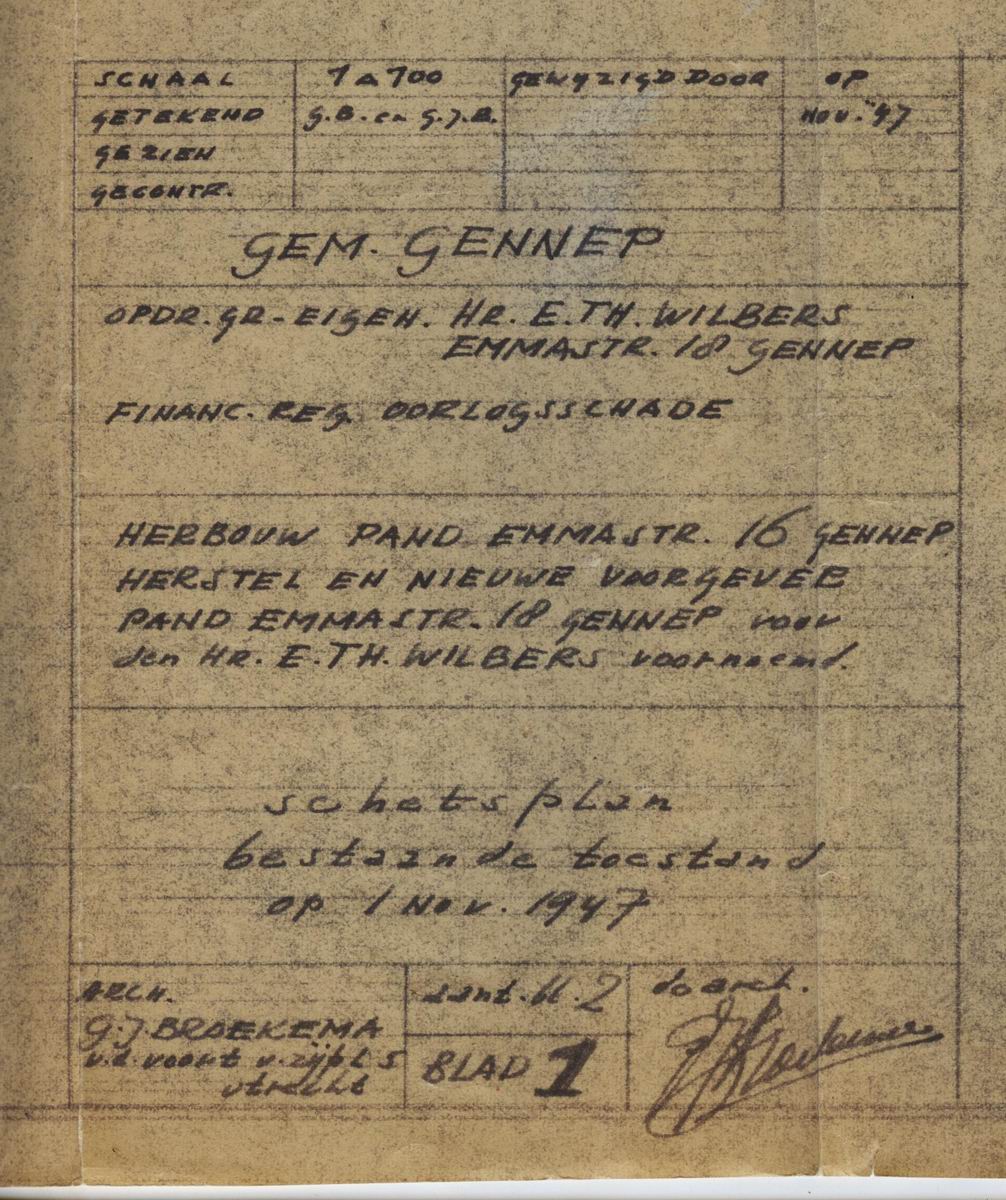 SCHAAL 1 a 100 GEWYZIGD DOOR OP
GETEKEND G.B. en G.J.B. NOV. '47
GEZIEN
GECONTR.
GEM. GENNEP
OPDR. GR - EIGEN. HR. E. TH. WILBERS
EMMASTR. 18 GENNEP
FINANC. REG. OORLOGSSCHADE
HERBOUW PAND EMMASTR. 16 GENNEP
HERSTEL EN NIEUWE VOORGEVEE
PAND EMMASTR. 18 GENNEP voor
den HR. E. TH. WILBERS voornoemd.
schetsplan
bestaande toestand
op 1 NOV. 1947
ARCH.
G.J. BROEKEMA
v.d. voort v. zijpl 5
utrecht
aant. bl. 2
BLAD 1
de arch.
GJBroekema